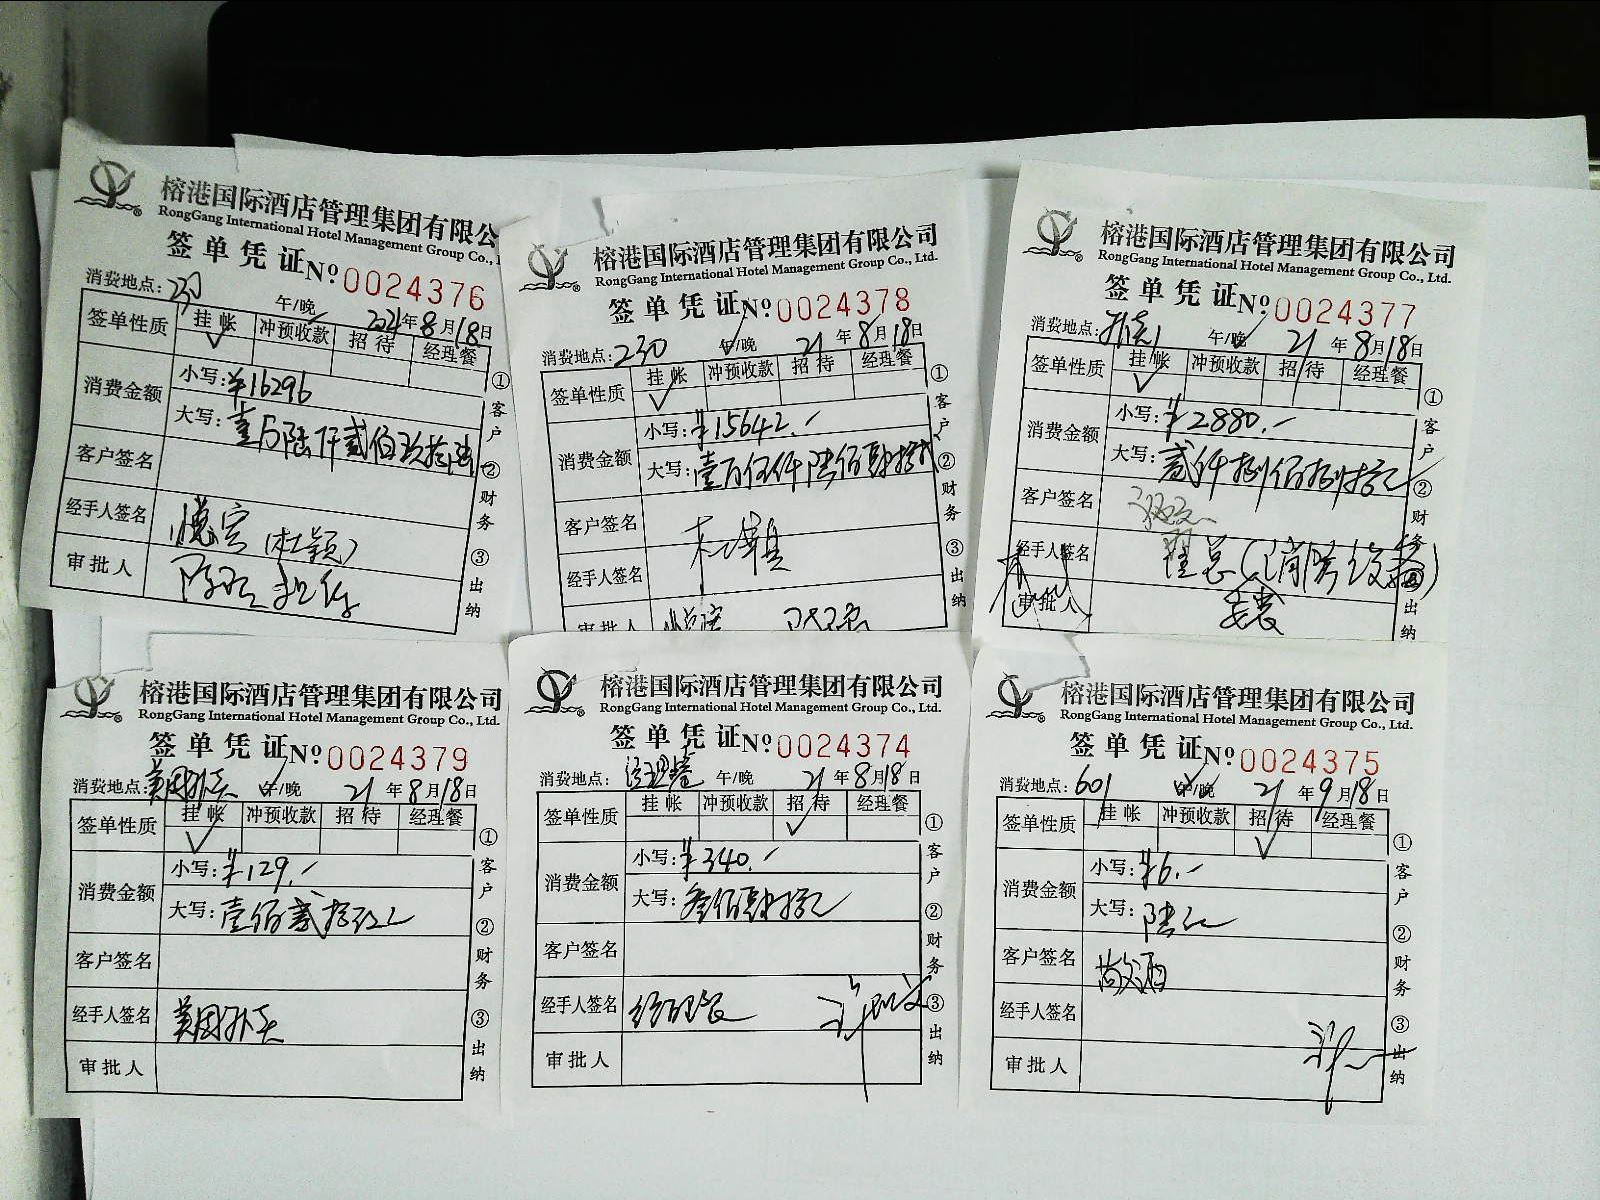 榕港国际酒店管理集团有限公
RongGang International Hotel Management Group Co.,
签单凭证 No. 0024376
消费地点: 230 午/晚 2021年8月18日
签单性质 挂帐 冲预收款 招待 经理餐
消费金额 小写: ¥16296
大写: 壹万陆仟贰佰玖拾陆
客户签名
经手人签名
(杜颖)
审批人
①客户 ②财务 ③出纳
榕港国际酒店管理集团有限公司
RongGang International Hotel Management Group Co., Ltd.
签单凭证 No. 0024378
消费地点: 230 午/晚 21年8月18日
签单性质 挂帐 冲预收款 招待 经理餐
消费金额 小写: ¥15642.-
大写: 壹万伍仟陆佰肆拾贰
客户签名
经手人签名
审批人
①客户 ②财务 ③出纳
榕港国际酒店管理集团有限公司
RongGang International Hotel Management Group Co., Ltd.
签单凭证 No. 0024377
消费地点: 午/晚 21年8月18日
签单性质 挂帐 冲预收款 招待 经理餐
消费金额 小写: ¥2880.-
大写: 贰仟捌佰捌拾元
客户签名
经手人签名
审批人
①客户 ②财务 ③出纳
榕港国际酒店管理集团有限公司
RongGang International Hotel Management Group Co., Ltd.
签单凭证 No. 0024379
消费地点: 美团外卖 午/晚 21年8月18日
签单性质 挂帐 冲预收款 招待 经理餐
消费金额 小写: ¥129.-
大写: 壹佰贰拾玖元
客户签名
经手人签名 美团外卖
审批人
①客户 ②财务 ③出纳
榕港国际酒店管理集团有限公司
RongGang International Hotel Management Group Co., Ltd.
签单凭证 No. 0024374
消费地点: 经理餐 午/晚 21年8月18日
签单性质 挂帐 冲预收款 招待 经理餐
消费金额 小写: ¥340.-
大写: 叁佰肆拾元
客户签名
经手人签名 经理餐
审批人
①客户 ②财务 ③出纳
榕港国际酒店管理集团有限公司
RongGang International Hotel Management Group Co., Ltd.
签单凭证 No. 0024375
消费地点: 601 午/晚 21年9月18日
签单性质 挂帐 冲预收款 招待 经理餐
消费金额 小写: ¥6.-
大写: 陆元
客户签名
经手人签名
审批人
①客户 ②财务 ③出纳